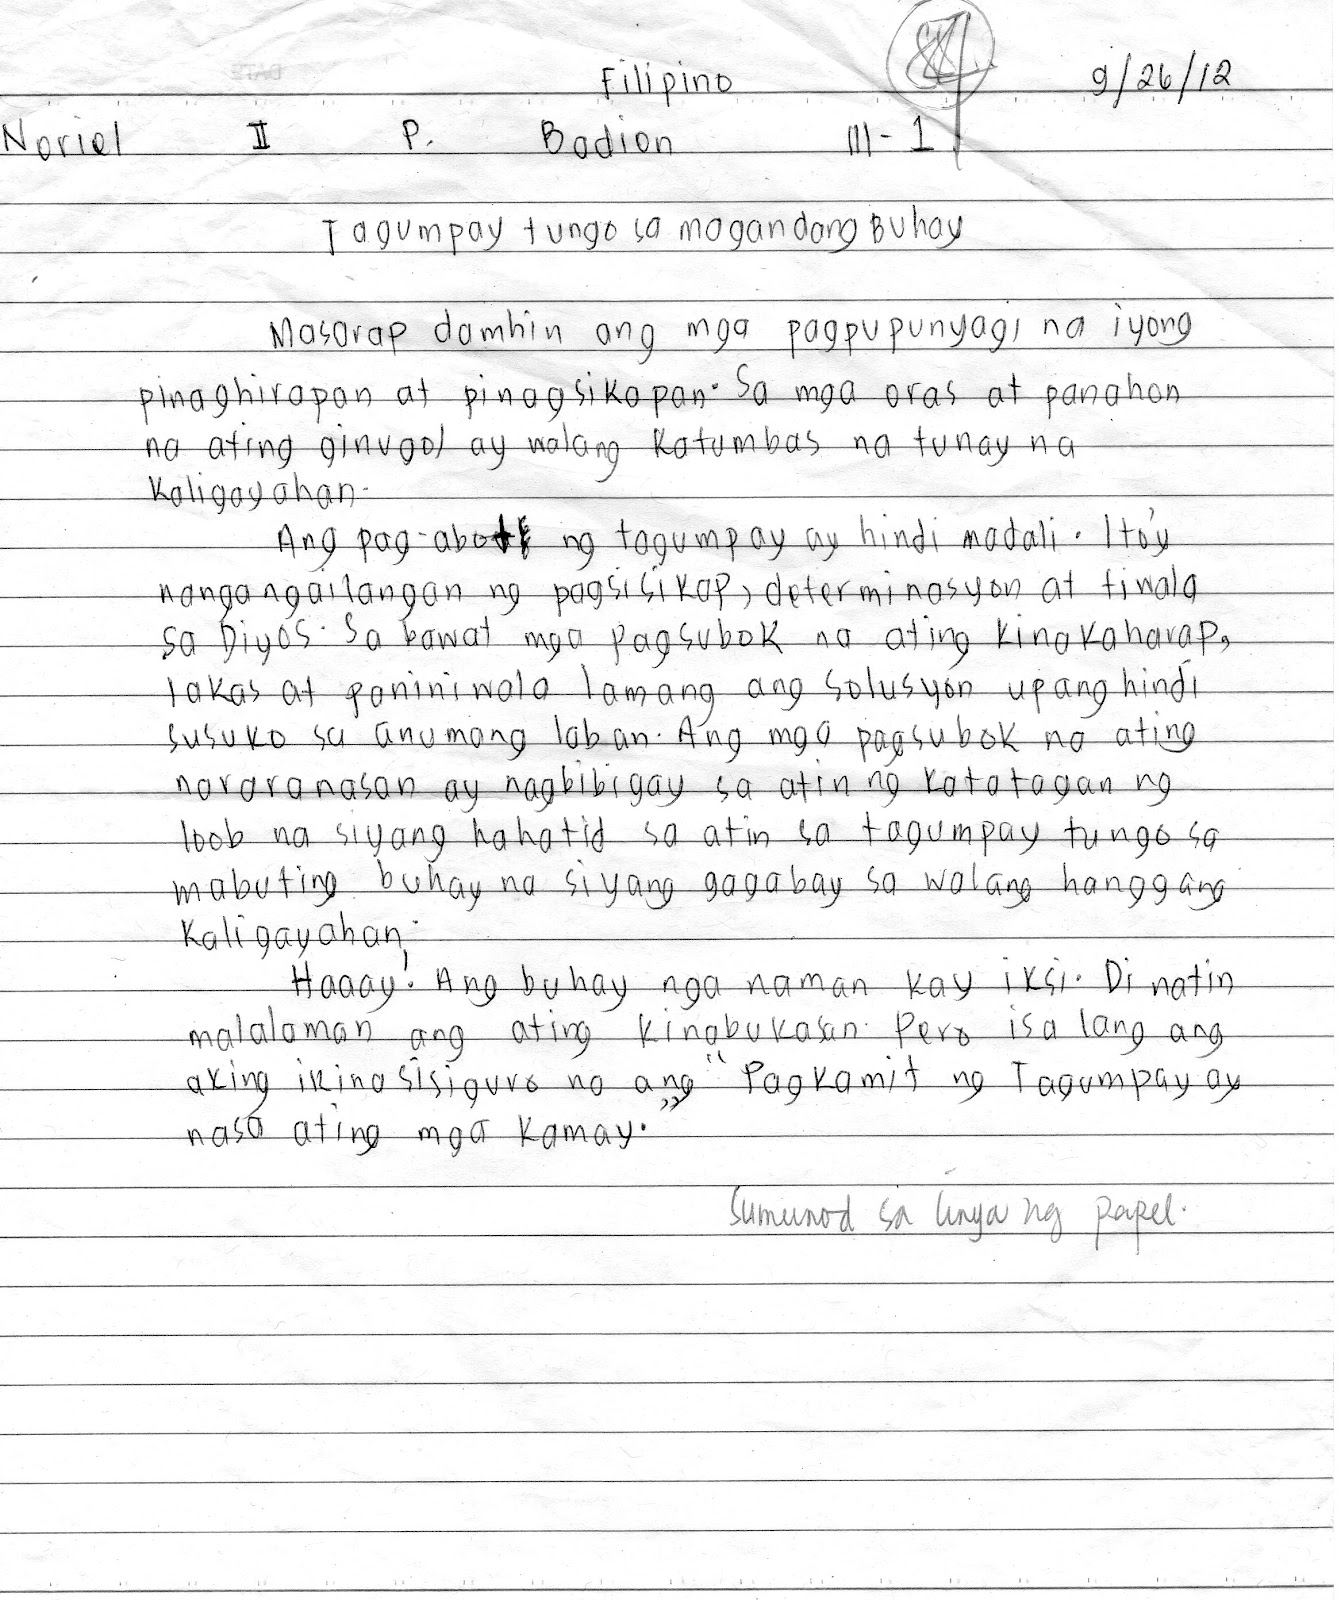 Filipino 9/26/12
Noriel II P. Badion III-1
Tagumpay tungo sa magandang Buhay
Masarap damhin ang mga pagpupunyagi na iyong
pinaghirapan at pinagsikapan. Sa mga oras at panahon
na ating ginugol ay walang katumbas na tunay na
kaligayahan.
Ang pag-abot ng tagumpay ay hindi madali. Ito'y
nangangailangan ng pagsisikap, determinasyon at tiwala
sa Diyos. Sa bawat mga pagsubok na ating kinakaharap,
lakas at paniniwala lamang ang solusyon upang hindi
susuko sa anumang laban. Ang mga pagsubok na ating
nararanasan ay nagbibigay sa atin ng katatagan ng
loob na siyang hahatid sa atin sa tagumpay tungo sa
mabuting buhay na siyang gagabay sa walang hanggang
kaligayahan.
Haaay! Ang buhay nga naman kay iksi. Di natin
malalaman ang ating kinabukasan. Pero isa lang ang
aking ikinasisiguro na ang "Pagkamit ng Tagumpay ay
nasa ating mga kamay."
Sumunod sa linya ng papel.